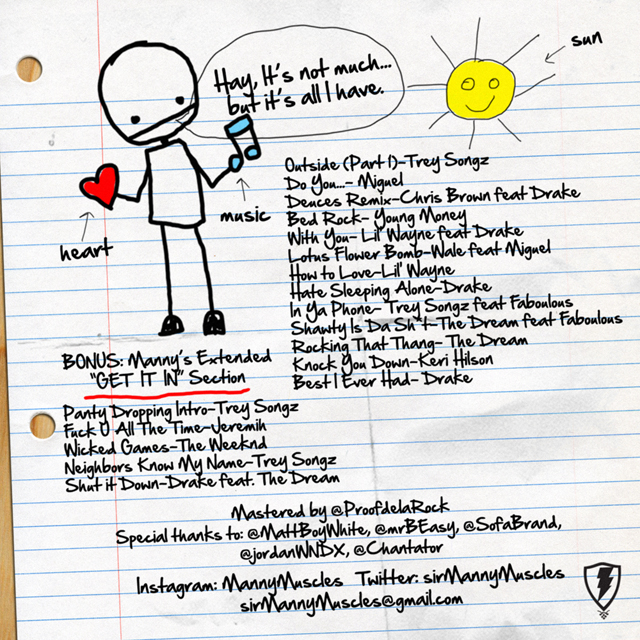 Hay, It's not much...
but it's all I have.
sun
heart
music
Outside (Part 1)-Trey Songz
Do You...- Miguel
Deuces Remix-Chris Brown feat Drake
Bed Rock- Young Money
With You- Lil' Wayne feat Drake
Lotus Flower Bomb-Wale feat Miguel
How to Love-Lil' Wayne
Hate Sleeping Alone-Drake
In Ya Phone- Trey Songz feat Faboulous
Shawty Is Da Sh*t-The Dream feat Faboulous
Rocking That Thang- The Dream
Knock You Down-Keri Hilson
Best I Ever Had- Drake
BONUS: Manny's Extended
"GET IT IN" Section
Panty Dropping Intro-Trey Songz
Fuck U All The Time-Jeremih
Wicked Games-The Weeknd
Neighbors Know My Name-Trey Songz
Shut it Down-Drake feat. The Dream
Mastered by @ProofdelaRock
Special thanks to: @MattBoyWhite, @mrBEasy, @SofaBrand,
@jordanWNDX, @Chantator
Instagram: MannyMuscles Twitter: sirMannyMuscles
sirMannyMuscles@gmail.com